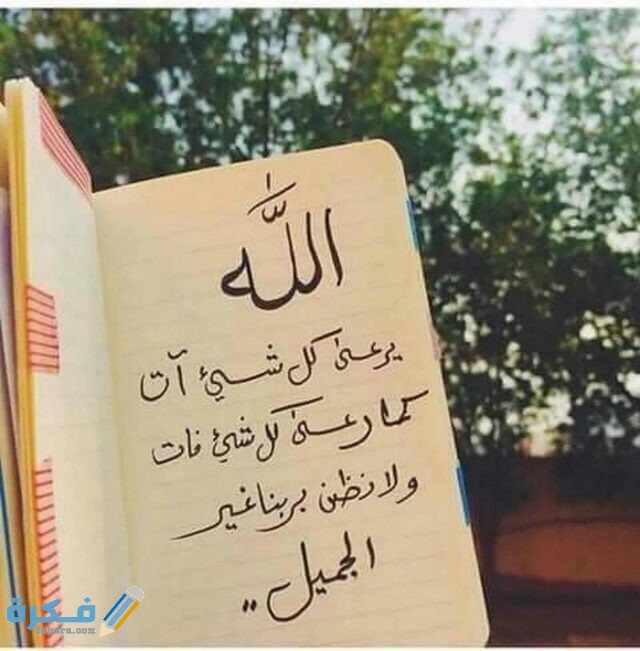 اللَّه
يرعىٰ كل شيئ آت
كما رعىٰ كل شيئ فات
ولا نظن بربنا غير
الجميل ..
فكرة
fekera.com